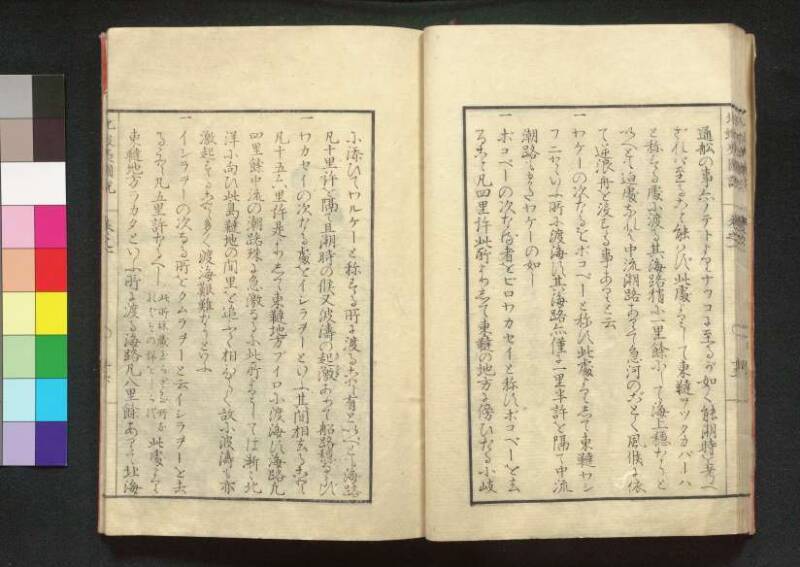 通船の事ハノテトよりナツコに至るが如く能潮時を考へ
ざれバ至ること能はず此處よりして東韃ワツタカバーハ
と称する處に渡る其海路稍小一里餘にして海上穏なりと
いへども迫處なれバ中流潮路ありて急河のごとく風候に依
て逆浪舟を没する事ありと云
一 ワゲーの次なるをポコベーと称す此處よりして東韃
フニヤといふ所に渡海す其海路僅に一里半許を隔て中流
潮路ありワゲーの如し
一 ポコベーの次なる者をビロワカセイと称すポコベーを去
ること凡四里許此所よりして東韃の地方に傍ひたる小岐
に添ひてワルケーと称する所に渡ること有といへども海路
凡十里許を隔て且潮時の候又波濤の起激ありて船路穏ならず
一 ワカセイの次なる處をイシラヲーといふ其間相去ること
凡十五六里許是よりして東韃地方ブイロに渡海す海路凡
四里餘中流の潮路殊に急激なるに此所よりしては漸々北
洋に向ひ此島韃地の間里を追ふて相ひらく故に波濤も亦
激起することて多く渡海難難なりといふ
一 イシラヲーの次なる所をクムラヲーと云イシラヲーを去
ること凡五里許なるべし
此處より
東韃地方ラカタといふ所に渡る海路凡八里餘ありて北海